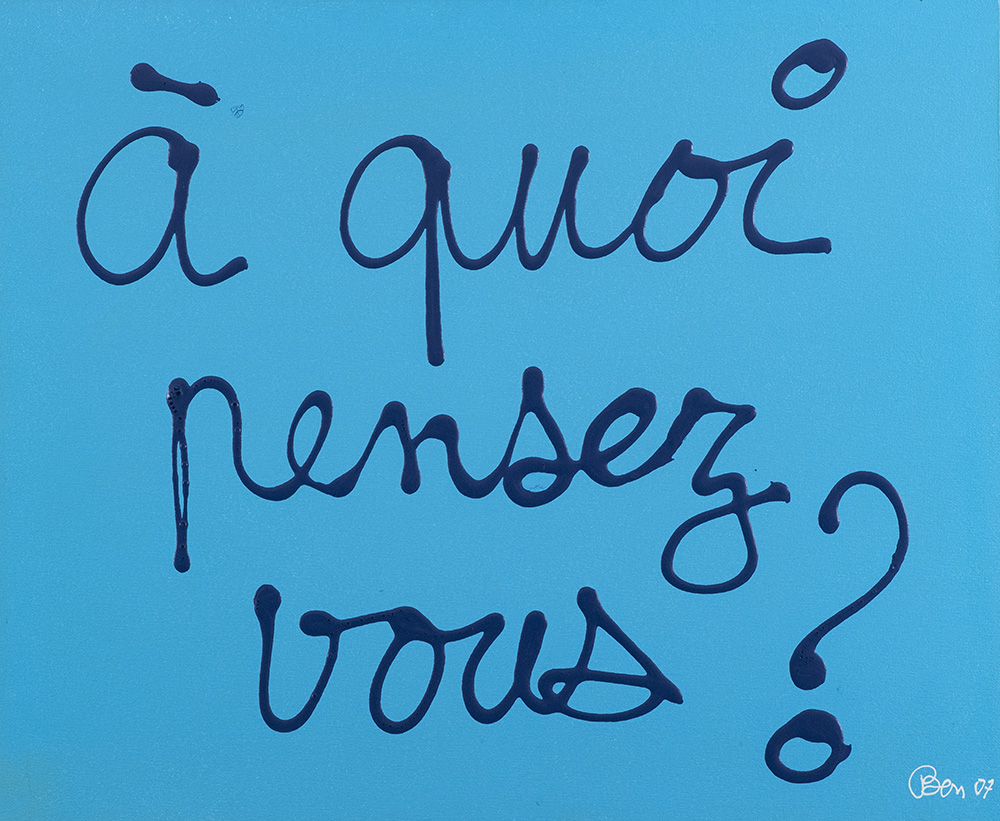 à quoi
pensez
vous?
Ben 07